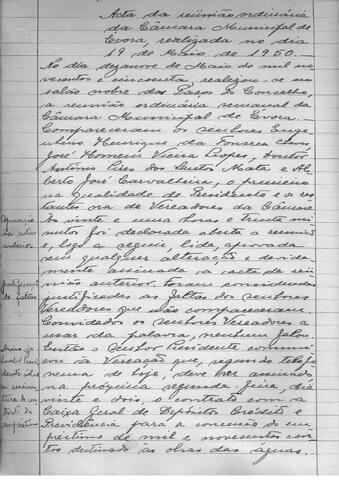 Acta da reünião ordinária
da Câmara Municipal de
Evora, realizada no dia
19 de Maio de 1950.
No dia dezanove de Maio de mil no-
vecentos e cincoenta, realizou-se no
salão nobre dos Paços do Concelho,
a reünião ordinária semanal da
Câmara Municipal de Evora.
Compareceram os senhores Enge-
nheiro Henrique da Fonseca Chaves
José Homem Vieira Lopes, Doutor
António Pires dos Santos Mata e Al-
berto José Carvalheira, o primeiro
na qualidade de Presidente e os res-
tantes na de Vereadores da Câmara.
Às vinte e uma horas e trinta mi-
nutos foi declarada aberta a reünião
e, logo a seguir, lida, aprovada
sem qualquer alteração e devida-
mente assinada a acta da reü-
nião anterior. Foram consideradas
justificadas as faltas dos senhores
Vereadores que não compareceram.
Convidados os senhores Vereadores a
usar da palavra, nenhum falou.
Então o Senhor Presidente comuni-
cou à Vereação que, segundo telefo-
nema de hoje, deve ser assinado
na próxima segunda-feira, dia
vinte e dois, o contrato com a
Caixa Geral de Depósitos Crédito e
Previdência para a concessão do em-
préstimo de mil e novecentos con-
tos destinado às obras das águas.
da acta
anterior
de faltas